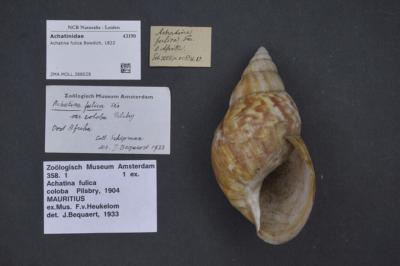 NCB Naturalis - Leiden
Achatinidae 43190
Achatina fulica Bowdich, 1822
ZMA.MOLL.388028
Achatina
fulica
O. Afrika
Zoölogisch Museum Amsterdam
Achatina fulica
var coloba Pilsby
Oost Afrika
Coll. Schepman
det. J. Bequaert 1933
Zoölogisch Museum Amsterdam
358. 1 1 ex.
Achatina fulica
coloba Pilsby, 1904
MAURITIUS
ex.Mus. F.v.Heukelom
det. J.Bequaert, 1933